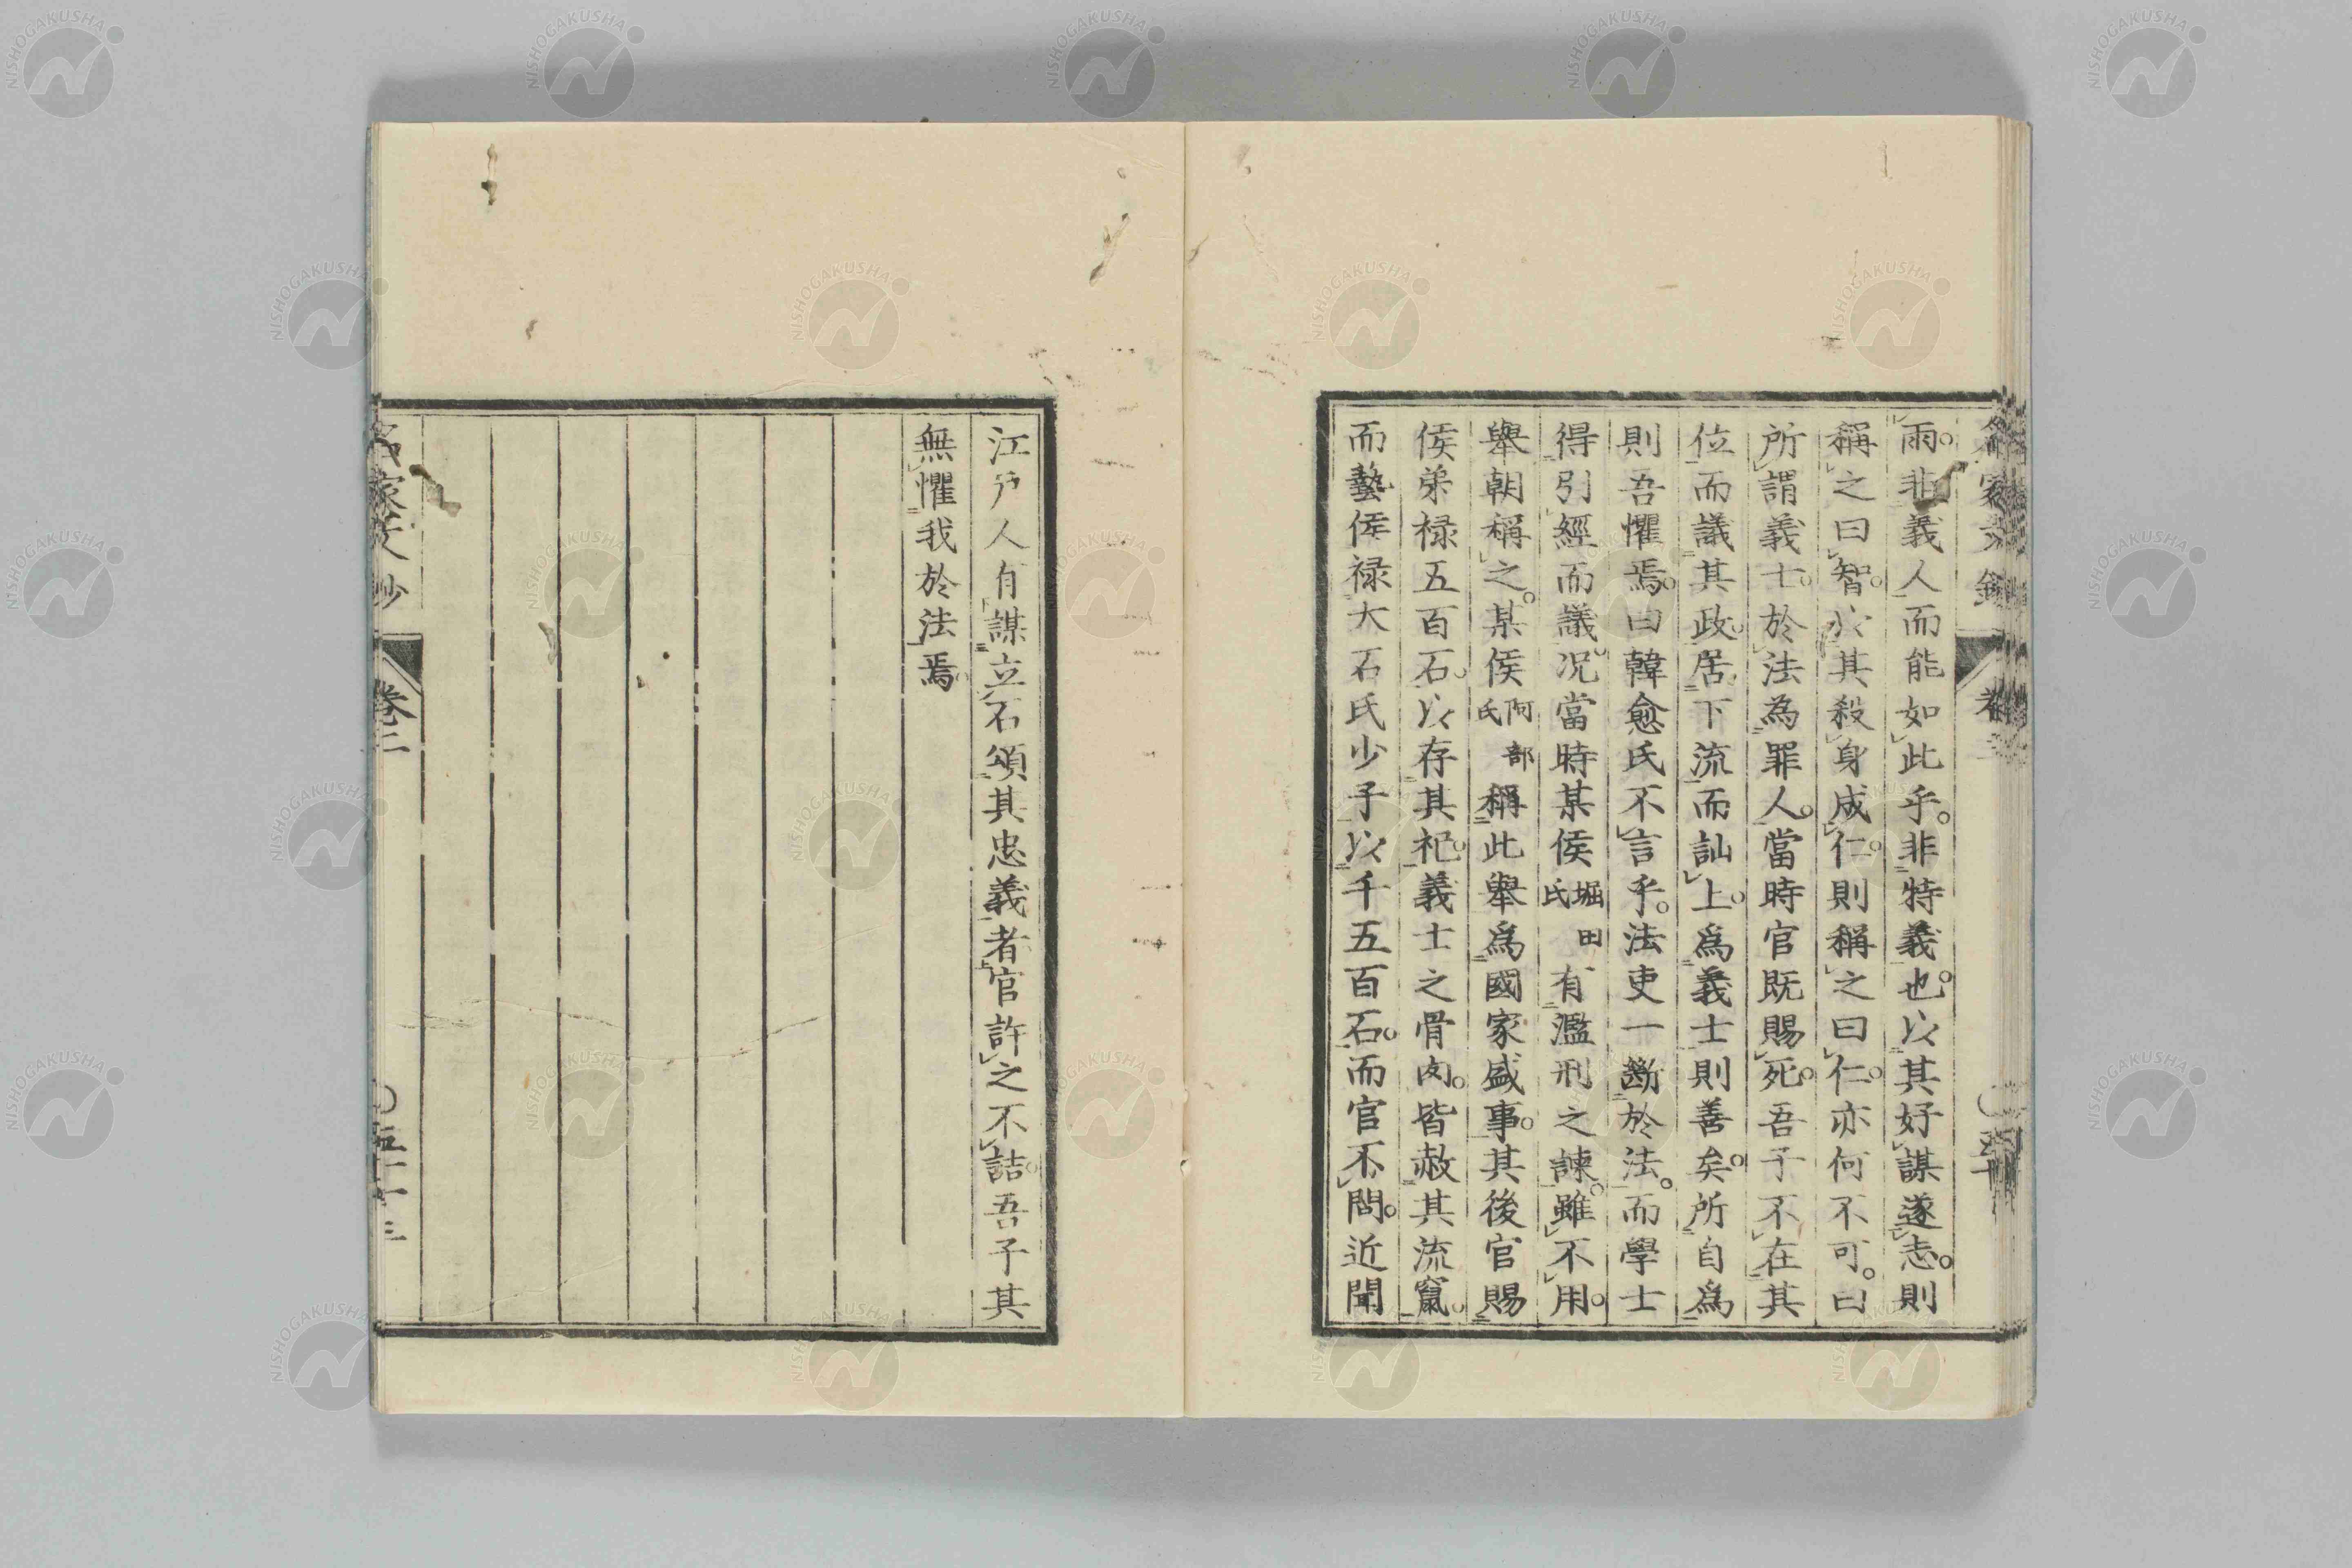 雨。非義人而能如此乎。非特義也。以其好謀遂志。則
稱之曰智。以其殺身成仁。則稱之曰仁。亦何不可。曰
所謂義士。於法為罪人。當時官既賜死。吾子不在其
位而議其政。居下流而訕上。爲義士則善矣。所自爲
則吾懼焉。曰韓愈氏不言乎。法吏一斷於法。而學士
得引經而議。況當時某侯堀田氏有濫刑之諫。雖不用。
舉朝稱之。某侯阿部氏稱此舉爲國家盛事。其後官賜
侯弟祿五百石。以存其祀。義士之骨肉。皆赦其流竄。
而藝侯祿大石氏少子以千五百石。而官不問。近聞
江戶人有謀立石頌其忠義者官許之不詰。吾子其
無懼我於法焉。
名家文抄 卷二 〇五十三
NISHOGAKUSHA